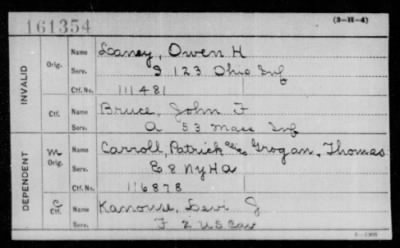 161354
(3-H-4)
INVALID
Orig.
Name
Laney, Owen H
Serv.
G 123 Ohio Inf
Ctf. No.
111481
Ctf.
Name
Bruce, John F
Serv.
A 53 Mass Inf
DEPENDENT
M
Orig.
Name
Carroll, Patrick alias Grogan, Thomas
Serv.
E 8 NYHA
Ctf. No.
116878
C
Ctf.
Name
Levi J
Serv.
F 2 US Cav